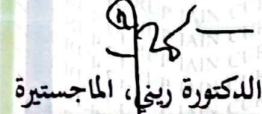 الدكتورة ريني، الماجستيرة